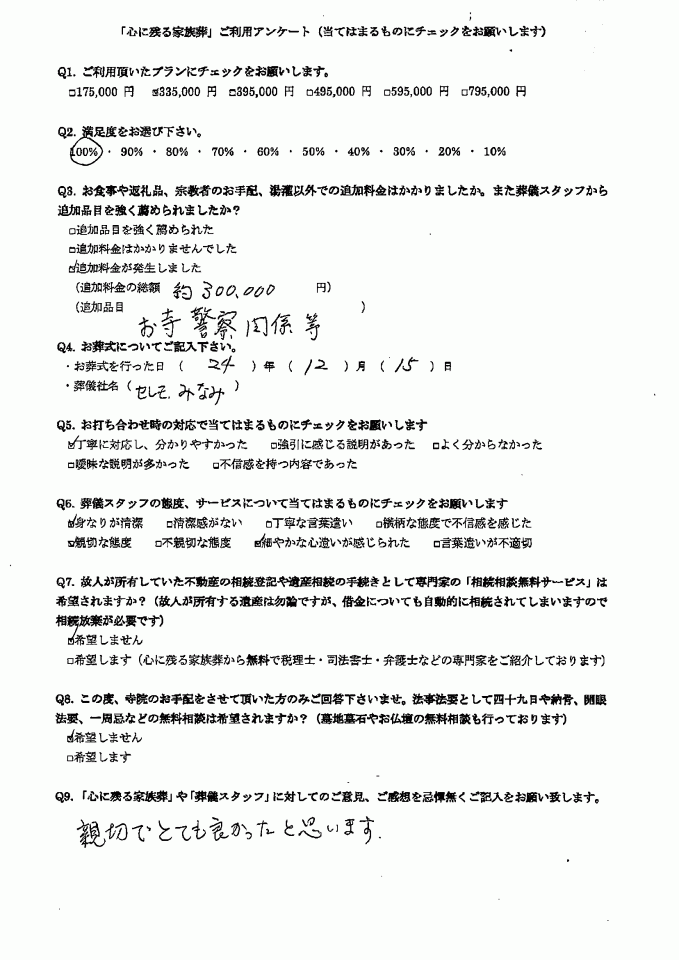 「心に残る家族葬」ご利用アンケート（当てはまるものにチェックをお願いします）
Q1. ご利用頂いたプランにチェックをお願いします。
□175,000 円 ☑335,000 円 □395,000 円 □495,000 円 □595,000 円 □795,000 円
Q2. 満足度をお選び下さい。
100%・ 90% ・ 80% ・ 70% ・ 60% ・ 50% ・ 40% ・ 30% ・ 20% ・ 10%
Q3. お食事や返礼品、宗教者のお手配、湯灌以外での追加料金はかかりましたか。また葬儀スタッフから
追加品目を強く薦められましたか？
□追加品目を強く薦められた
□追加料金はかかりませんでした
☑追加料金が発生しました
（追加料金の総額 約 300,000 円）
（追加品目 お寺 警察 関係 等 ）
Q4. お葬式についてご記入下さい。
・お葬式を行った日 （ 24 ）年（ 12 ）月（ 15 ）日
・葬儀社名（ セレモ みなみ ）
Q5. お打ち合わせ時の対応で当てはまるものにチェックをお願いします
☑丁寧に対応し、分かりやすかった □強引に感じる説明があった □よく分からなかった
□曖昧な説明が多かった □不信感を持つ内容であった
Q6. 葬儀スタッフの態度、サービスについて当てはまるものにチェックをお願いします
☑身なりが清潔 □清潔感がない □丁寧な言葉遣い □横柄な態度で不信感を感じた
☑親切な態度 □不親切な態度 ☑細やかな心遣いが感じられた □言葉遣いが不適切
Q7. 故人が所有していた不動産の相続登記や遺産相続の手続きとして専門家の「相続相談無料サービス」は
希望されますか？（故人が所有する遺産は勿論ですが、借金についても自動的に相続されてしまいますので
相続放棄が必要です）
☑希望しません
□希望します（心に残る家族葬から無料で税理士・司法書士・弁護士などの専門家をご紹介しております）
Q8. この度、寺院のお手配をさせて頂いた方のみご回答下さいませ。法事法要として四十九日や納骨、開眼
法要、一周忌などの無料相談は希望されますか？（墓地墓石やお仏壇の無料相談も行っております）
☑希望しません
□希望します
Q9. 「心に残る家族葬」や「葬儀スタッフ」に対してのご意見、ご感想を忌憚無くご記入をお願い致します。
親切でとても良かったと思います.